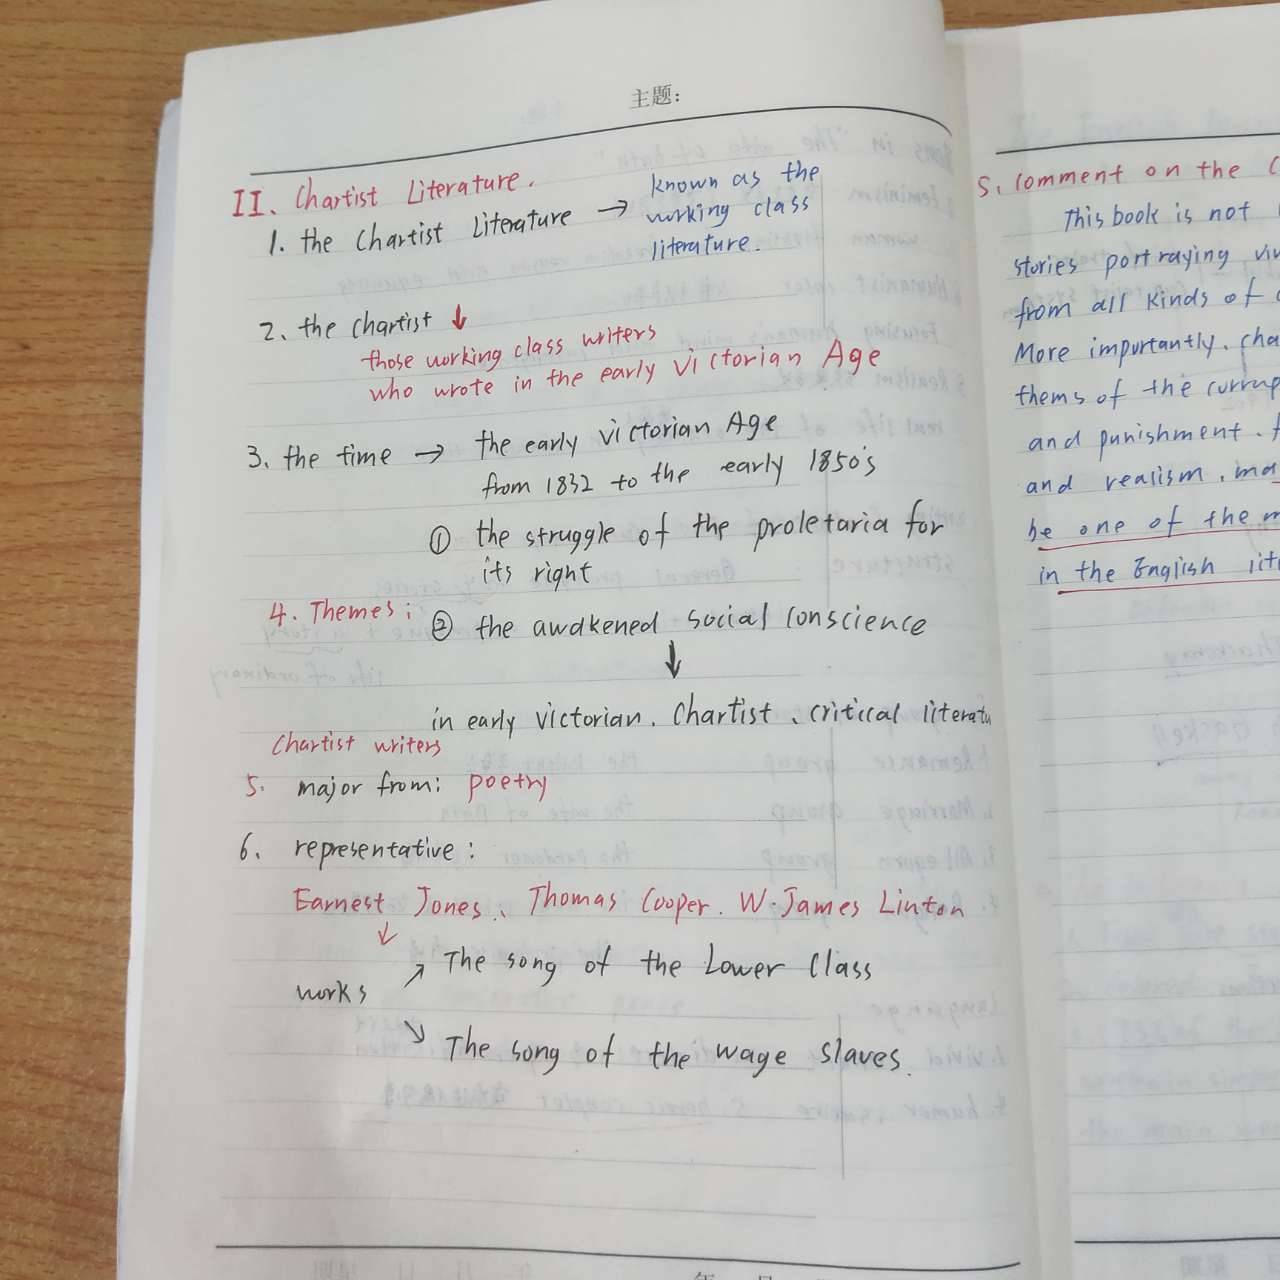 主题:
II. Chartist Literature.
1. the Chartist Literature → known as the
working class
literature.
2. the chartist ↓
those working class writers
who wrote in the early Victorian Age
3. the time → the early victorian Age
from 1832 to the early 1850's
① the struggle of the proletaria for
its right
4. Themes:
② the awakened social conscience
↓
in early victorian. Chartist、critical literatu
Chartist writers
5. major from: poetry
6. representative:
Earnest Jones、Thomas Cooper. W. James Linton
↓
works ↗ The song of the Lower Class
↘ The song of the wage slaves.
5. Comment on the C
This book is not
stories portraying viv
from all kinds of
More importantly, cha
thems of the currup
and punishment.
and realism, ma
be one of the m
in the English lit